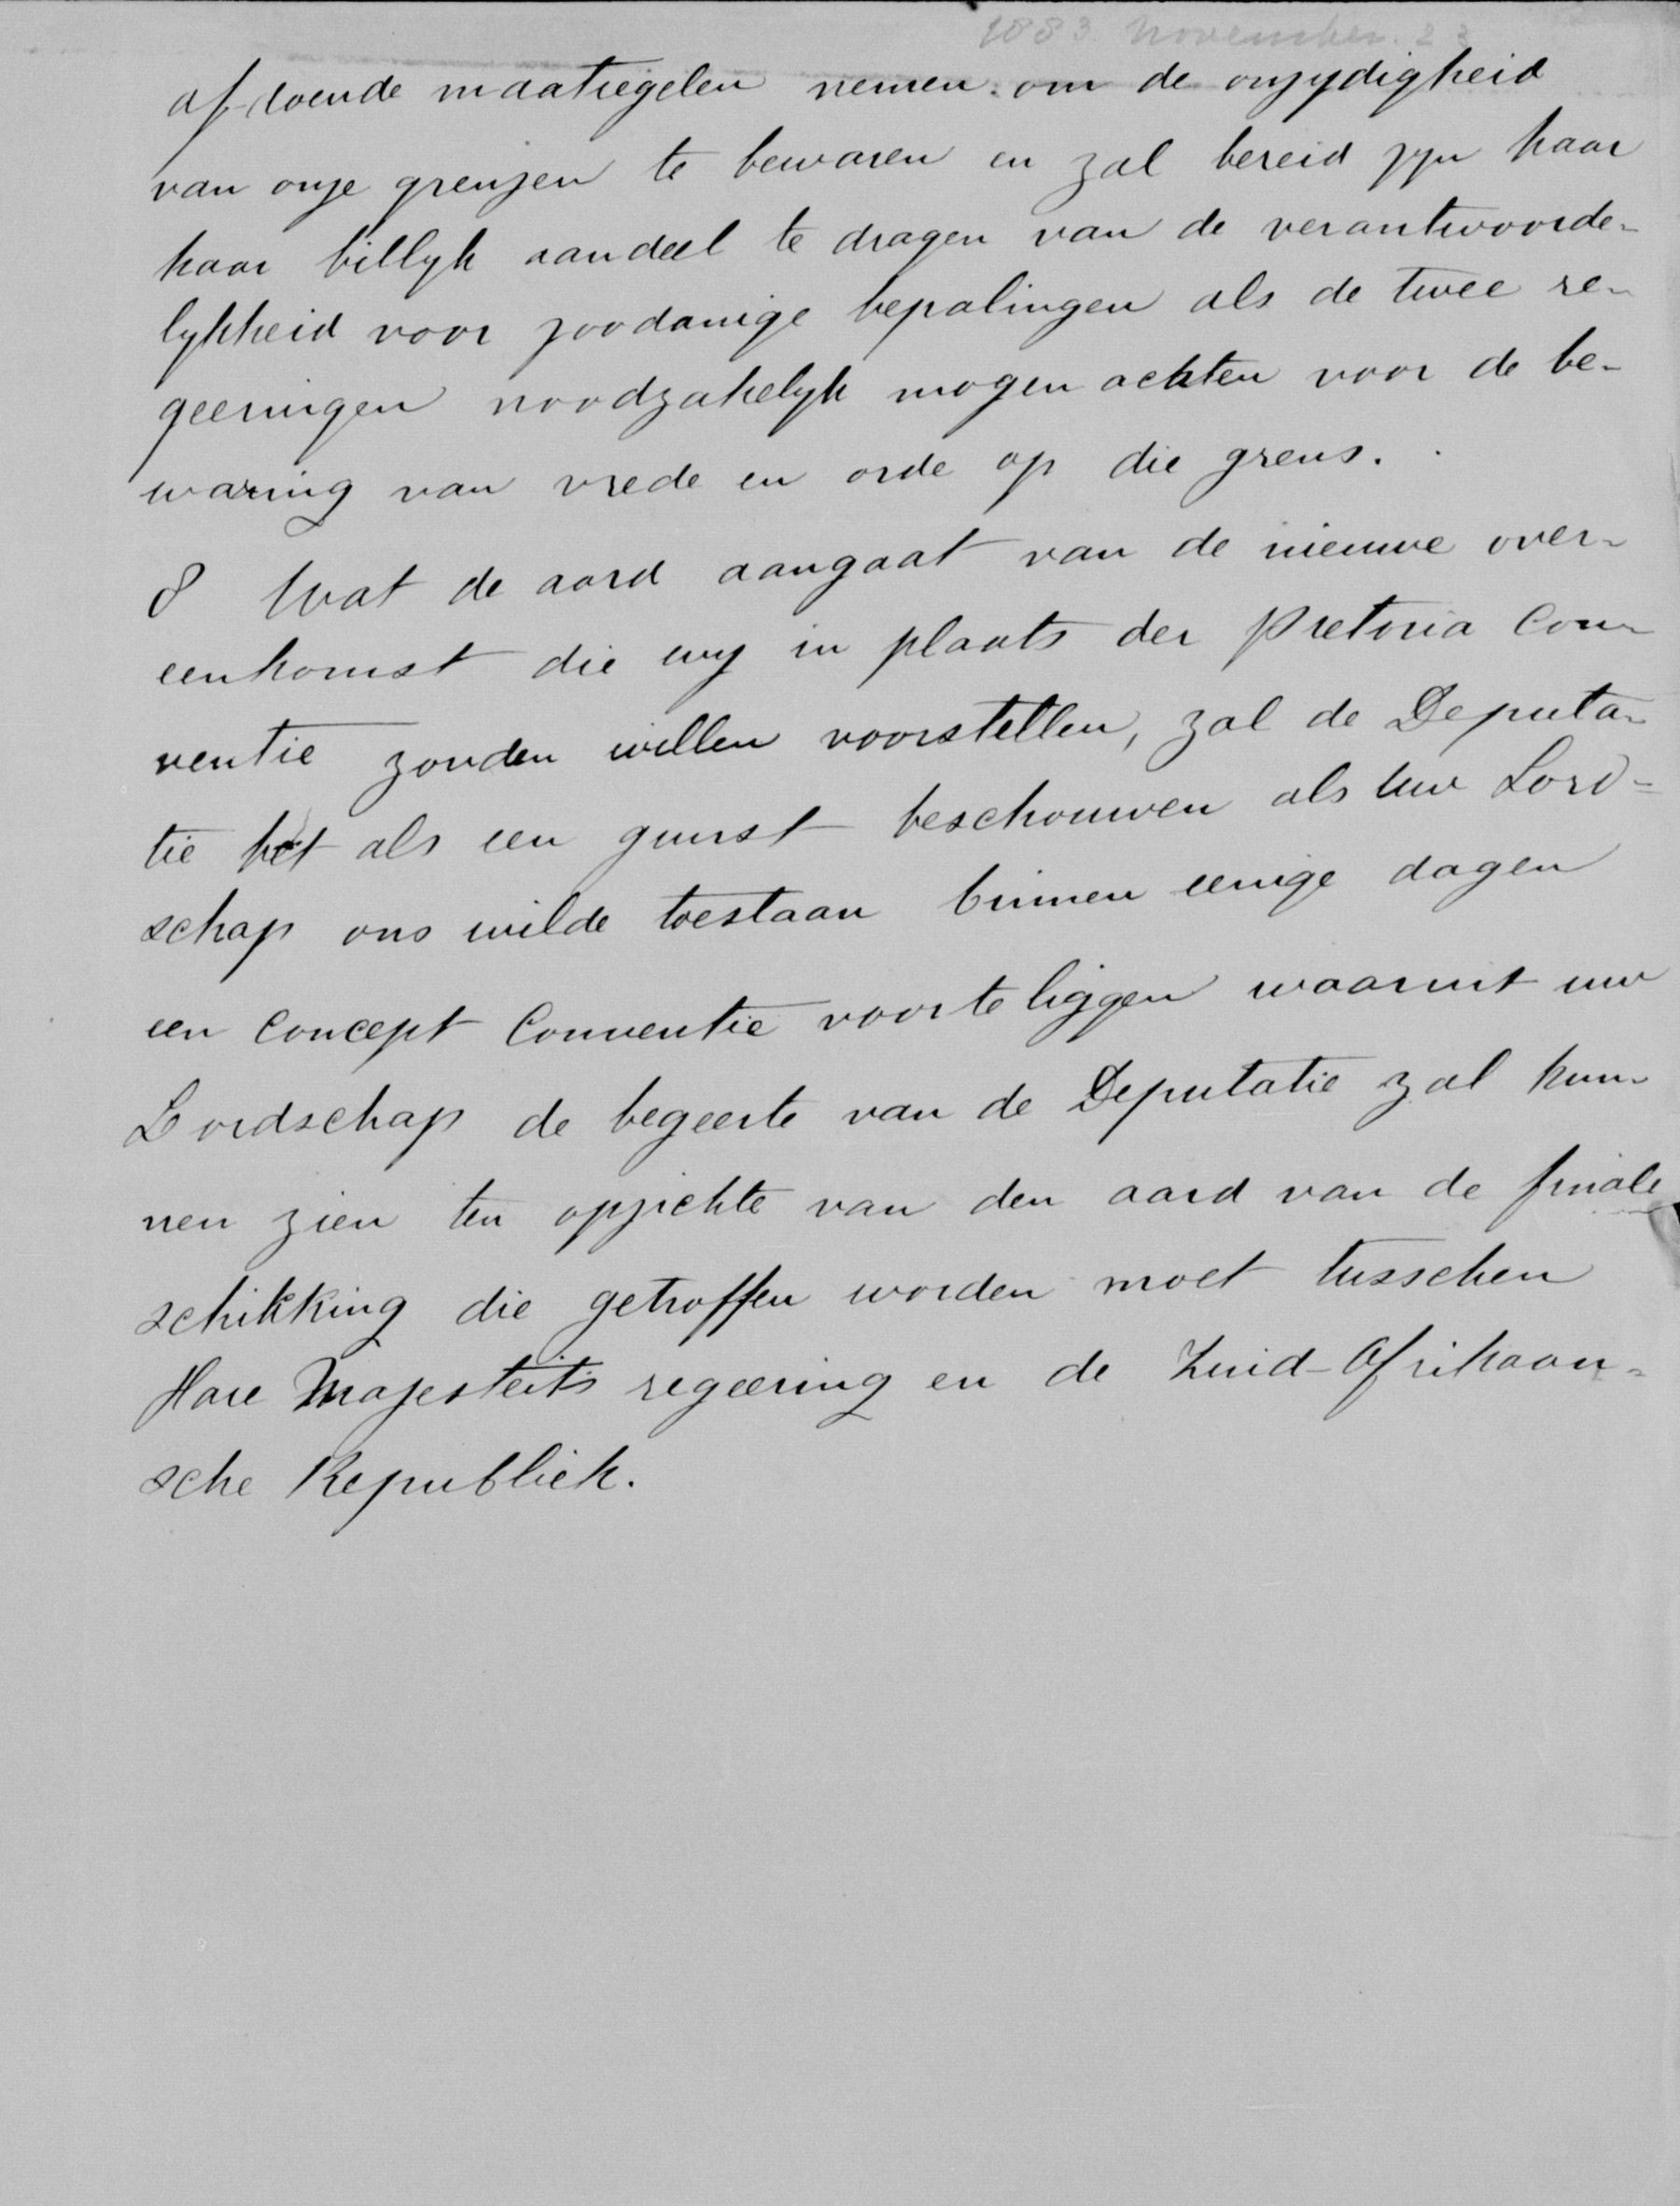 1883. November. 23
afdoende maatregelen nemen om de onzydigheid
van onze grenzen te bewaren en zal bereid zyn haar
haar billyk aandeel te dragen van de verantwoorde-
lykheid voor zoodanige bepalingen als de twee re-
geeringen noodzakelyk mogen achten voor de be-
waring van vrede en orde op die grens.
8 Wat de aard aangaat van de nieuwe over-
eenkomst die wy in plaats der Pretoria Con-
ventie zouden willen voorstellen, zal de Deputa-
tie het als een gunst beschouwen als Uw Lord-
schap ons wilde toestaan binnen eenige dagen
een Concept Conventie voor te liggen waaruit uw
Lordschap de begeerte van de Deputatie zal kun-
nen zien ten opzichte van den aard van de finale
schikking die getroffen worden moet tusschen
Hare Majesteit's regeering en de Zuid-Afrikaan-
sche Republiek.